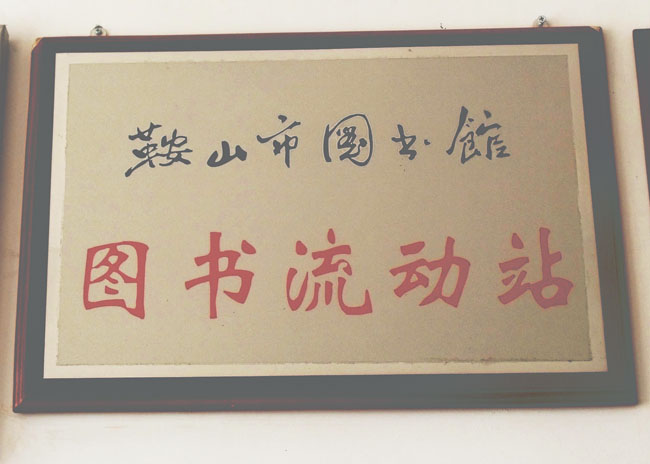 鞍山市图书馆
图书流动站